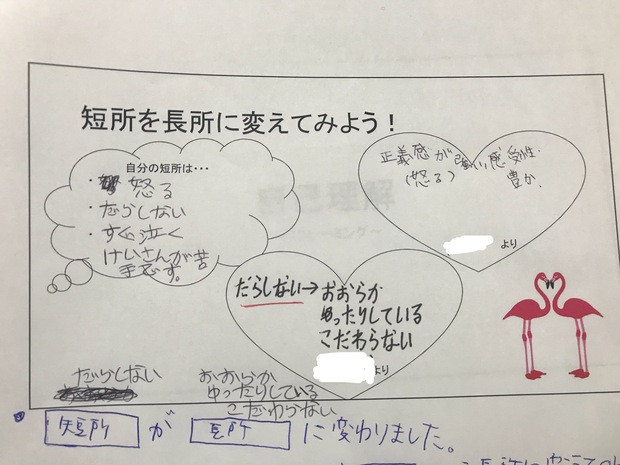 短所を長所に変えてみよう！
自分の短所は…
・怒る
・だらしない
・すぐ泣く
けいさんが苦
手です。
正義感が強い 感受性
(怒る) 豊か.
より
だらしない→おおらか
ゆったりしている
こだわらない
より
だらしない
おおらか
ゆったりしている
こだわらない
短所 が 長所 に変わりました。